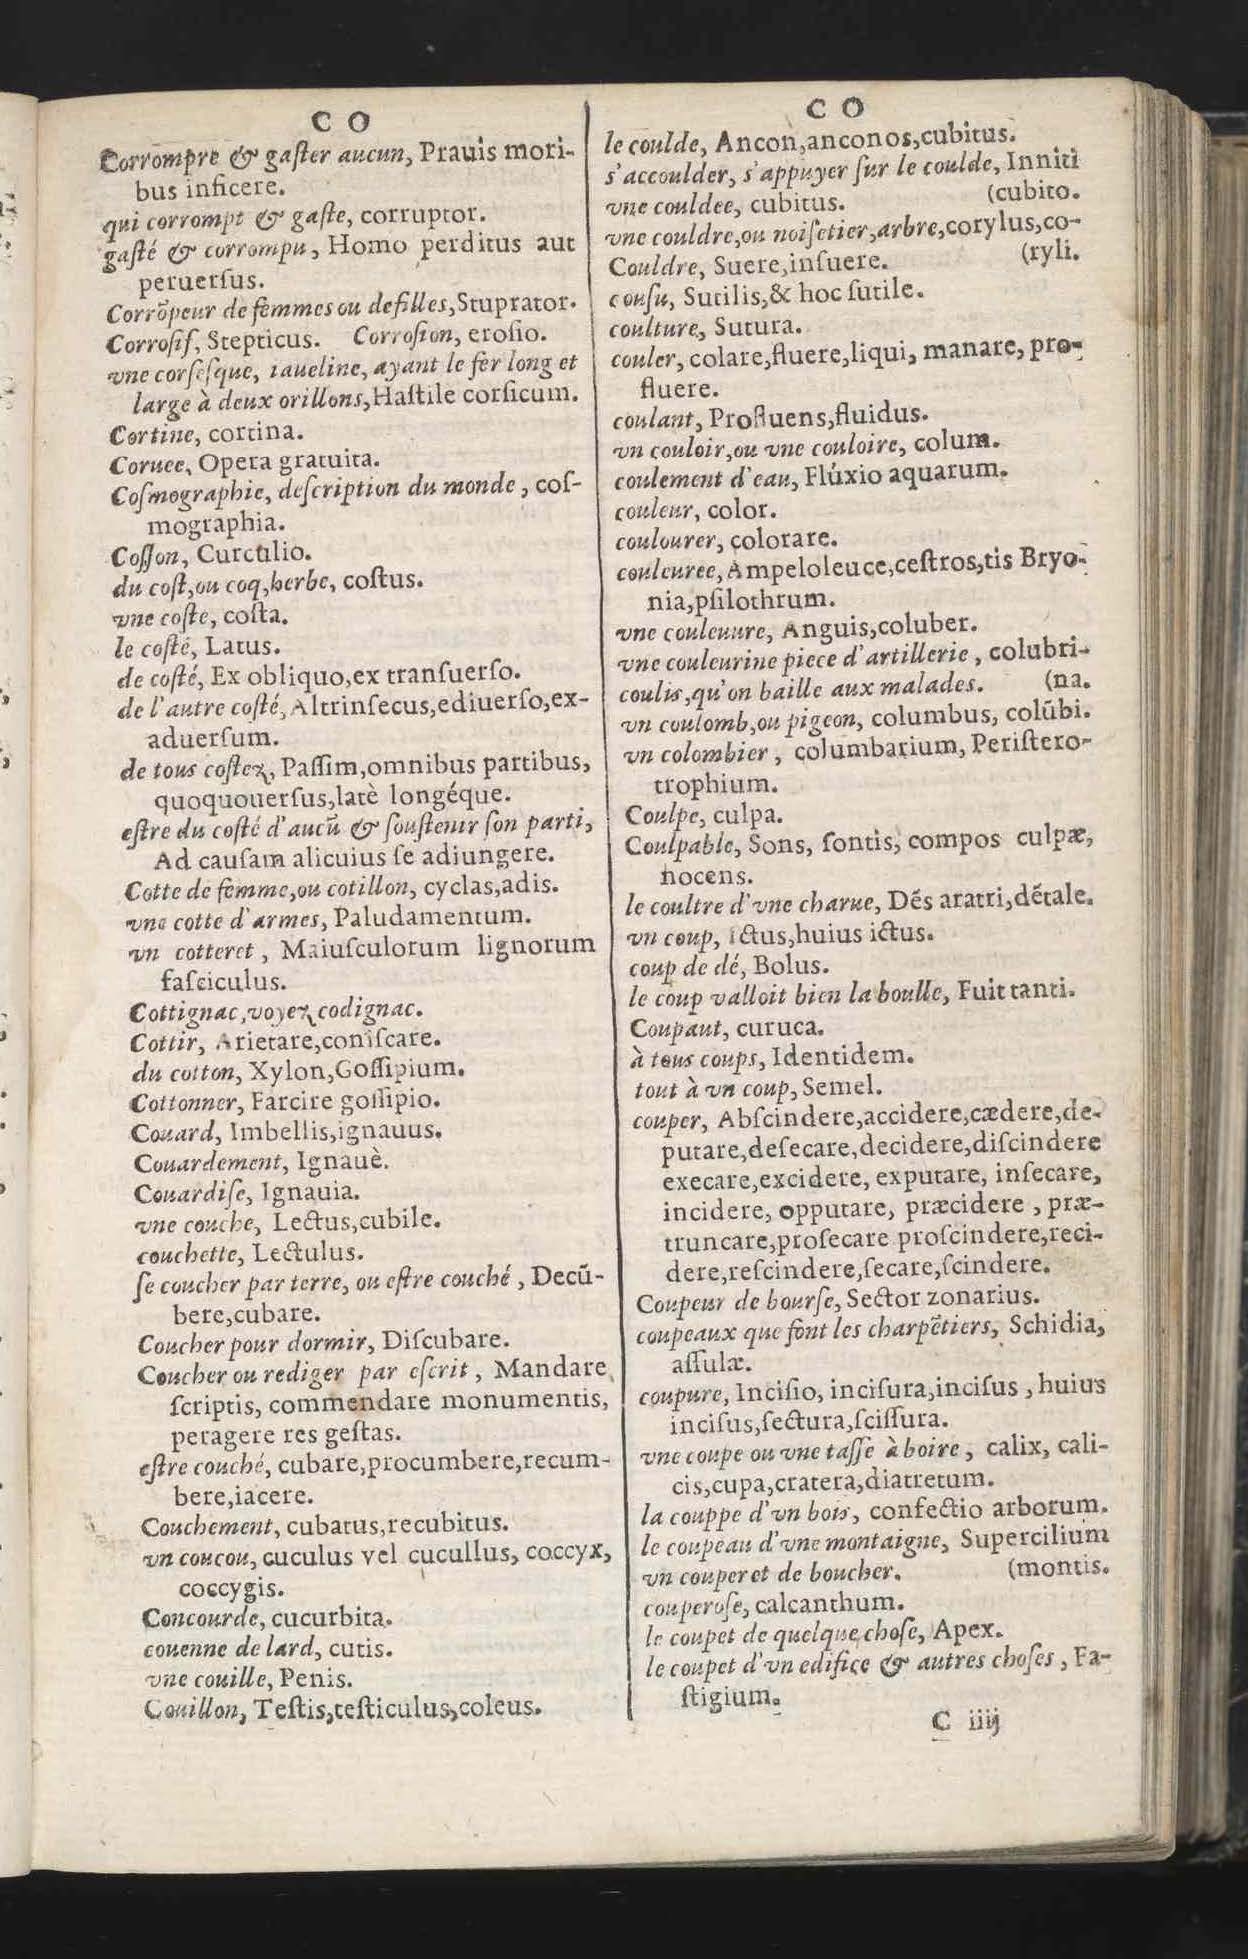 C O
Corrompre & gaſter aucun, Prauis mori-
bus inficere.
qui corrompt & gaſte, corruptor.
gaſté & corrompu, Homo perditus aut
peruerſus.
Corrõpeur de femmes ou de filles, Stuprator.
Corroſif, Stepticus. Corroſion, eroſio.
vne corſeſque, iaueline, ayant le fer long et
large à deux orillons, Haſtile corſicum.
Cortine, cortina.
Coruee, Opera gratuita.
Coſmographie, deſcription du monde, coſ-
mographia.
Coſſon, Curculio.
du coſt, ou coq, herbe, coſtus.
vne coſte, coſta.
le coſté, Latus.
de coſté, Ex obliquo, ex tranſuerſo.
de l'autre coſté, Altrinſecus, ediuerſo, ex-
aduerſum.
de tous coſtez, Paſſim, omnibus partibus,
quoquouerſus, latè longéque.
eſtre du coſté d'aucũ & ſouſtenir ſon parti,
Ad cauſam alicuius ſe adiungere.
Cotte de femme, ou cotillon, cyclas, adis.
vne cotte d'armes, Paludamentum.
vn cotteret, Maiuſculorum lignorum
faſciculus.
Cottignac, voyez codignac.
Cottir, Arietare, coniſcare.
du cotton, Xylon, Goſſipium.
Cottonner, Farcire goſſipio.
Couard, Imbellis, ignauus.
Couardement, Ignauè.
Couardiſe, Ignauia.
vne couche, Lectus, cubile.
couchette, Lectulus.
ſe coucher par terre, ou eſtre couché, Decũ-
bere, cubare.
Coucher pour dormir, Diſcubare.
Coucher ou rediger par eſcrit, Mandare
ſcriptis, commendare monumentis,
peragere res geſtas.
eſtre couché, cubare, procumbere, recum-
bere, iacere.
Couchement, cubatus, recubitus.
vn coucou, cuculus vel cucullus, coccyx,
coccygis.
Concourde, cucurbita.
couenne de lard, cutis.
vne couille, Penis.
Couillon, Teſtis, teſticulus, coleus.
C O
le coulde, Ancon, anconos, cubitus.
s'accoulder, s'appuyer ſur le coulde, Inniti
vne couldee, cubitus. (cubito.
vne couldre, ou noiſetier, arbre, corylus, co-
Couldre, Suere, inſuere. (ryli.
couſu, Sutilis, & hoc ſutile.
coulture, Sutura.
couler, colare, fluere, liqui, manare, pro-
fluere.
coulant, Profluens, fluidus.
vn couloir, ou vne couloire, colum.
coulement d'eau, Flúxio aquarum.
couleur, color.
coulourer, colorare.
couleuree, Ampeloleuce, ceſtros, tis Bryo-
nia, pſilothrum.
vne couleuure, Anguis, coluber.
vne couleurine piece d'artillerie, colubri-
coulis, qu'on baille aux malades. (na.
vn coulomb, ou pigeon, columbus, colũbi.
vn colombier, columbarium, Periſtero-
trophium.
Coulpe, culpa.
Coulpable, Sons, ſontis, compos culpæ,
nocens.
le coultre d'vne charue, Dẽs aratri, dẽtale.
vn coup, ictus, huius ictus.
coup de dé, Bolus.
le coup valloit bien la boulle, Fuit tanti.
Coupaut, curuca.
à tous coups, Identidem.
tout à vn coup, Semel.
couper, Abſcindere, accidere, cædere, de-
putare, deſecare, decidere, diſcindere
execare, excidere, exputare, inſecare,
incidere, opputare, præcidere, præ-
truncare, proſecare proſcindere, reci-
dere, reſcindere, ſecare, ſcindere.
Coupeur de bourſe, Sector zonarius.
coupeaux que font les charpẽtiers, Schidia,
aſſulæ.
coupure, Inciſio, inciſura, inciſus, huius
inciſus, ſectura, ſciſſura.
vne coupe ou vne taſſe à boire, calix, cali-
cis, cupa, cratera, diatretum.
la couppe d'vn bois, confectio arborum.
le coupeau d'vne montaigne, Supercilium
vn couperet de boucher. (montis.
couperoſe, calcanthum.
le coupet de quelque choſe, Apex.
le coupet d'vn edifice & autres choſes, Fa-
ſtigium.
C iiij